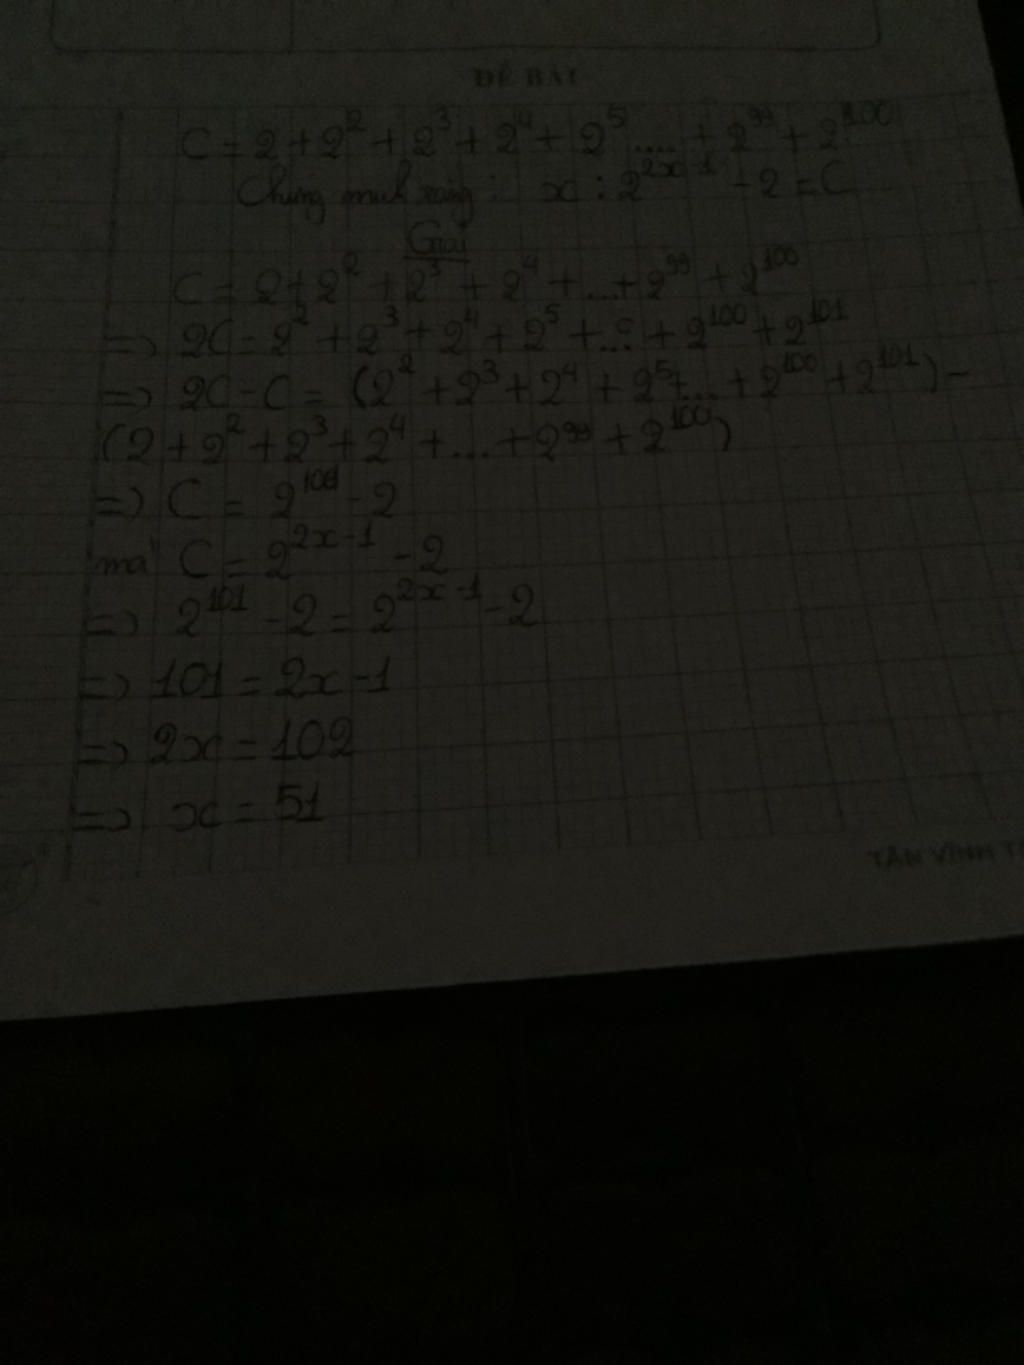 ĐỀ BÀI
C = 2 + 2² + 2³ + 2⁴ + 2⁵ .... + 2⁹⁹ + 2¹⁰⁰
Chứng minh rằng : x : 2²ˣ⁻¹ - 2 = C
Giải
C = 2 + 2² + 2³ + 2⁴ + .... + 2⁹⁹ + 2¹⁰⁰
=> 2C = 2² + 2³ + 2⁴ + 2⁵ + ... + 2¹⁰⁰ + 2¹⁰¹
=> 2C - C = (2² + 2³ + 2⁴ + 2⁵ + ... + 2¹⁰⁰ + 2¹⁰¹) -
(2 + 2² + 2³ + 2⁴ + ... + 2⁹⁹ + 2¹⁰⁰)
=> C = 2¹⁰¹ - 2
mà C = 2²ˣ⁻¹ - 2
=> 2¹⁰¹ - 2 = 2²ˣ⁻¹ - 2
=> 101 = 2x - 1
=> 2x = 102
=> x = 51
TÂN VĨNH